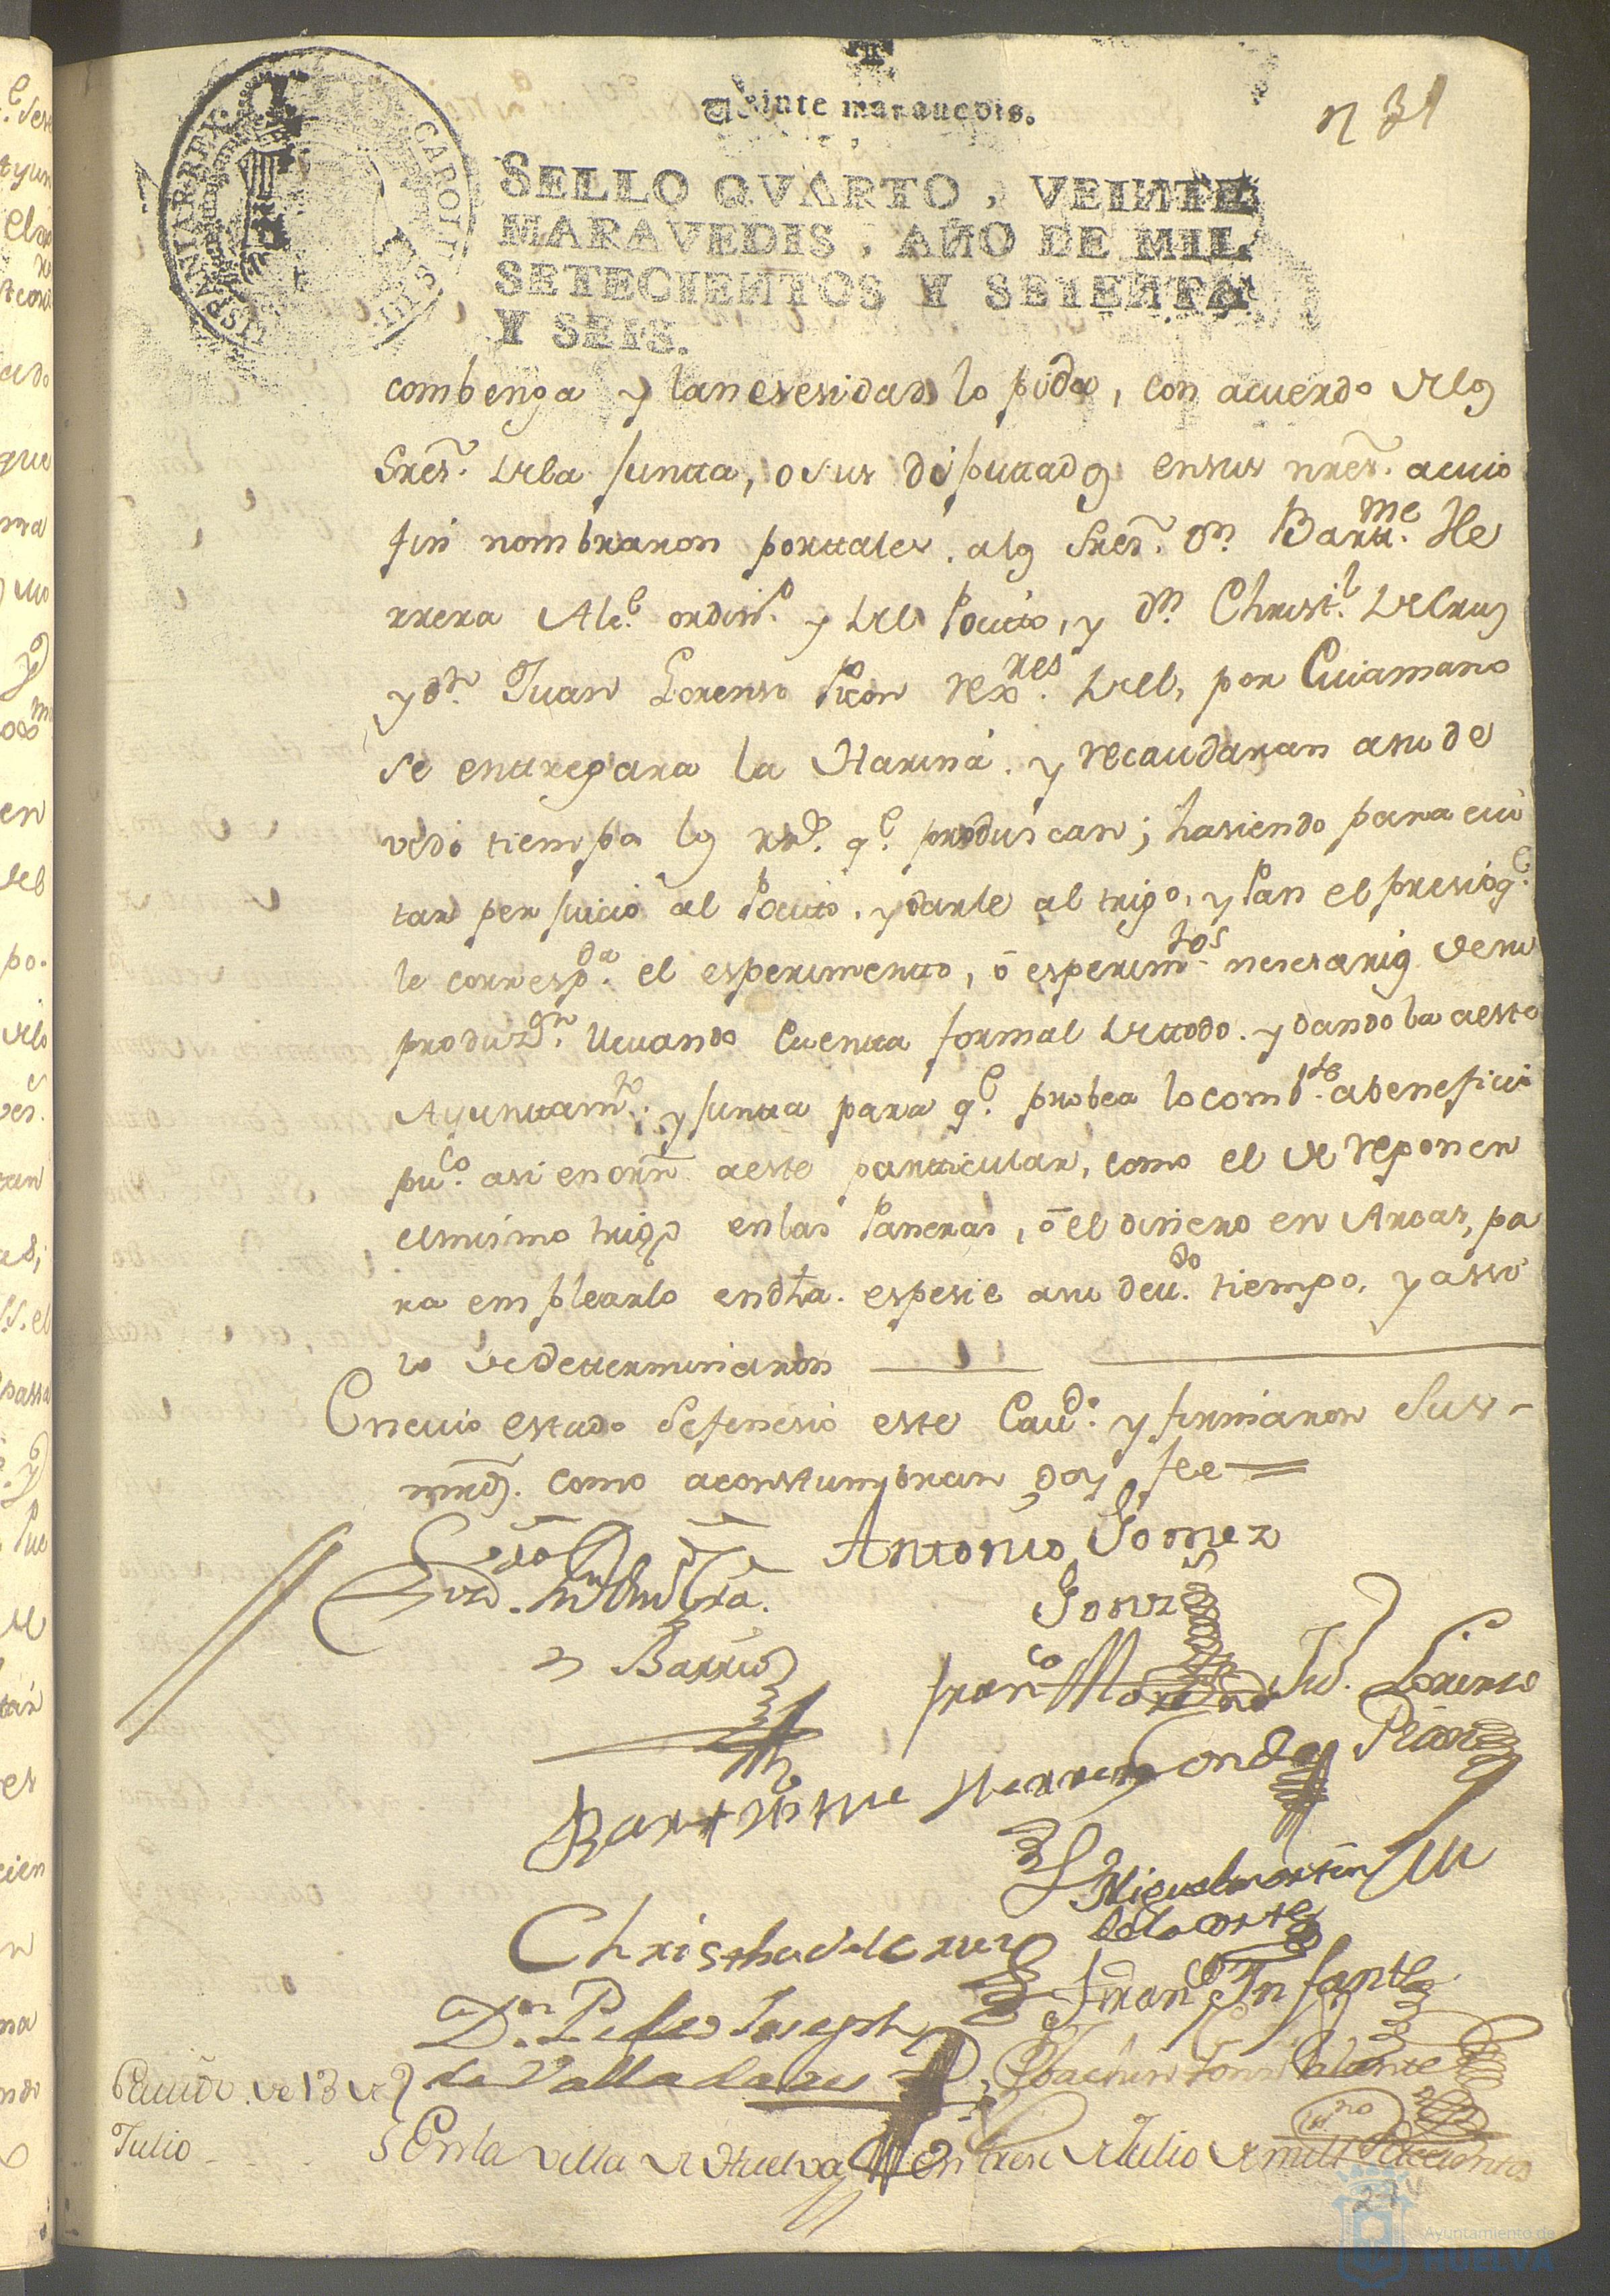 Veinte maravedis.
n 31
CAROLUS III HISPANIAR REX
SELLO QVARTO, VEINTE
MARAVEDIS, AÑO DE MIL
SETECIENTOS Y SETENTA
Y SEIS.
combenga y lanesesidad lo pida, con acuerdo de los
Sres. dela Juntta, o sus Diputtados en sus nres. a cuio
fin nombraron por ttales a los Sres. Dn. Bartme. He
rrera Alce. ordino. y del Posito, y Dn. Christl. de Cruz
y Dn. Juan Lorenso Picon Rexres. de el, por Cuia mano
se entregara la Harina y recaudaran a su de
vido tiempo los mrs. qe. produscan; hasiendo para evi
tar perjuicio al Posito, y darle al trigo, y Pan el presio qe.
le correspda. el esperimentto, ó esperimtos. nesesarios de su
produzon. llevando Cuentta formal de ttodo y dandola a este
Ayunttamto. y Juntta para qe. probea lo combte. a beneficio
puco. asi en orn. a este partticular, como el de reponer
el mismo trigo en las Paneras, ó el dinero en Arcas, pa
ra emplearlo en dha. espesie a su devdo. tiempo, y asi
lo determinaron
En cuio estado se fenesió este Cavdo. y firmaron Sus
mrds. como acostumbran doy fee
Antonio Gomez
Gonz
Barrio
Franco Moreno
Jn. Lorenso
Picon
Barttme Herrera Conde
Miguel martin
de la corte
Christbal de Cruz
Franco Infante
Dn. Pedro Joseph
de Valladares
Cavildo de 13 de
Julio
En la villa de Huelva en trese de Julio de mill settecientos
27v
Ayuntamiento de
HUELVA